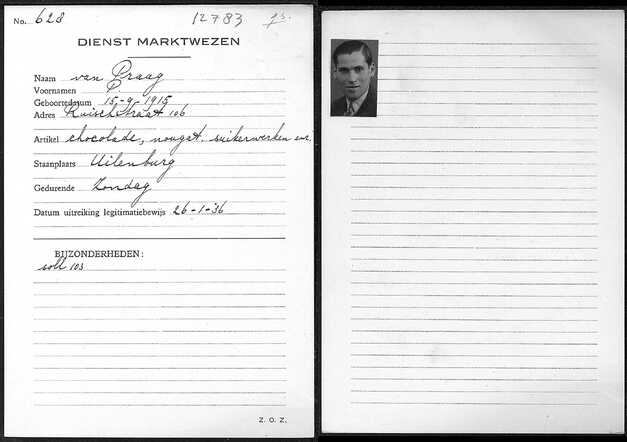 No. 628 12783
DIENST MARKTWEZEN
Naam van Praag
Voornamen P.
Geboortedatum 15-9-1915
Adres Ruischstraat 106
Artikel chocolade, nougat, suikerwerken enz.
Staanplaats Uilenburg
Gedurende Zondag
Datum uitreiking legitimatiebewijs 26-1-'36
BIJZONDERHEDEN:
soll 103
Z. O. Z.